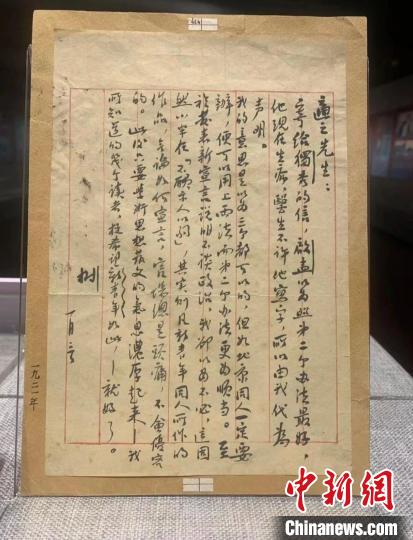 適之先生：
寄給獨秀的信，啟孟以爲照第二个办法最好，
他現在生病，醫生不許他寫字，所以由我代爲
声明。
我的意思是以爲三个都可以的，但如北京同人一定要
辦，便可以用上兩法而第二个办法更爲順当。至
於發表新宣言說明不談政治，我却以爲不必，這固
然小半在「不願示人以弱」，其實則凡新青年同人所作的
作品，無論如何宣言，官場總是頭痛，不會優容
的。此後只要學術思想藝文的氣息濃厚起來——我
所知道的幾个讀者，極希望新青年如此，——就好了。
樹 一月三日
一九二一年
中新网
Chinanews.com